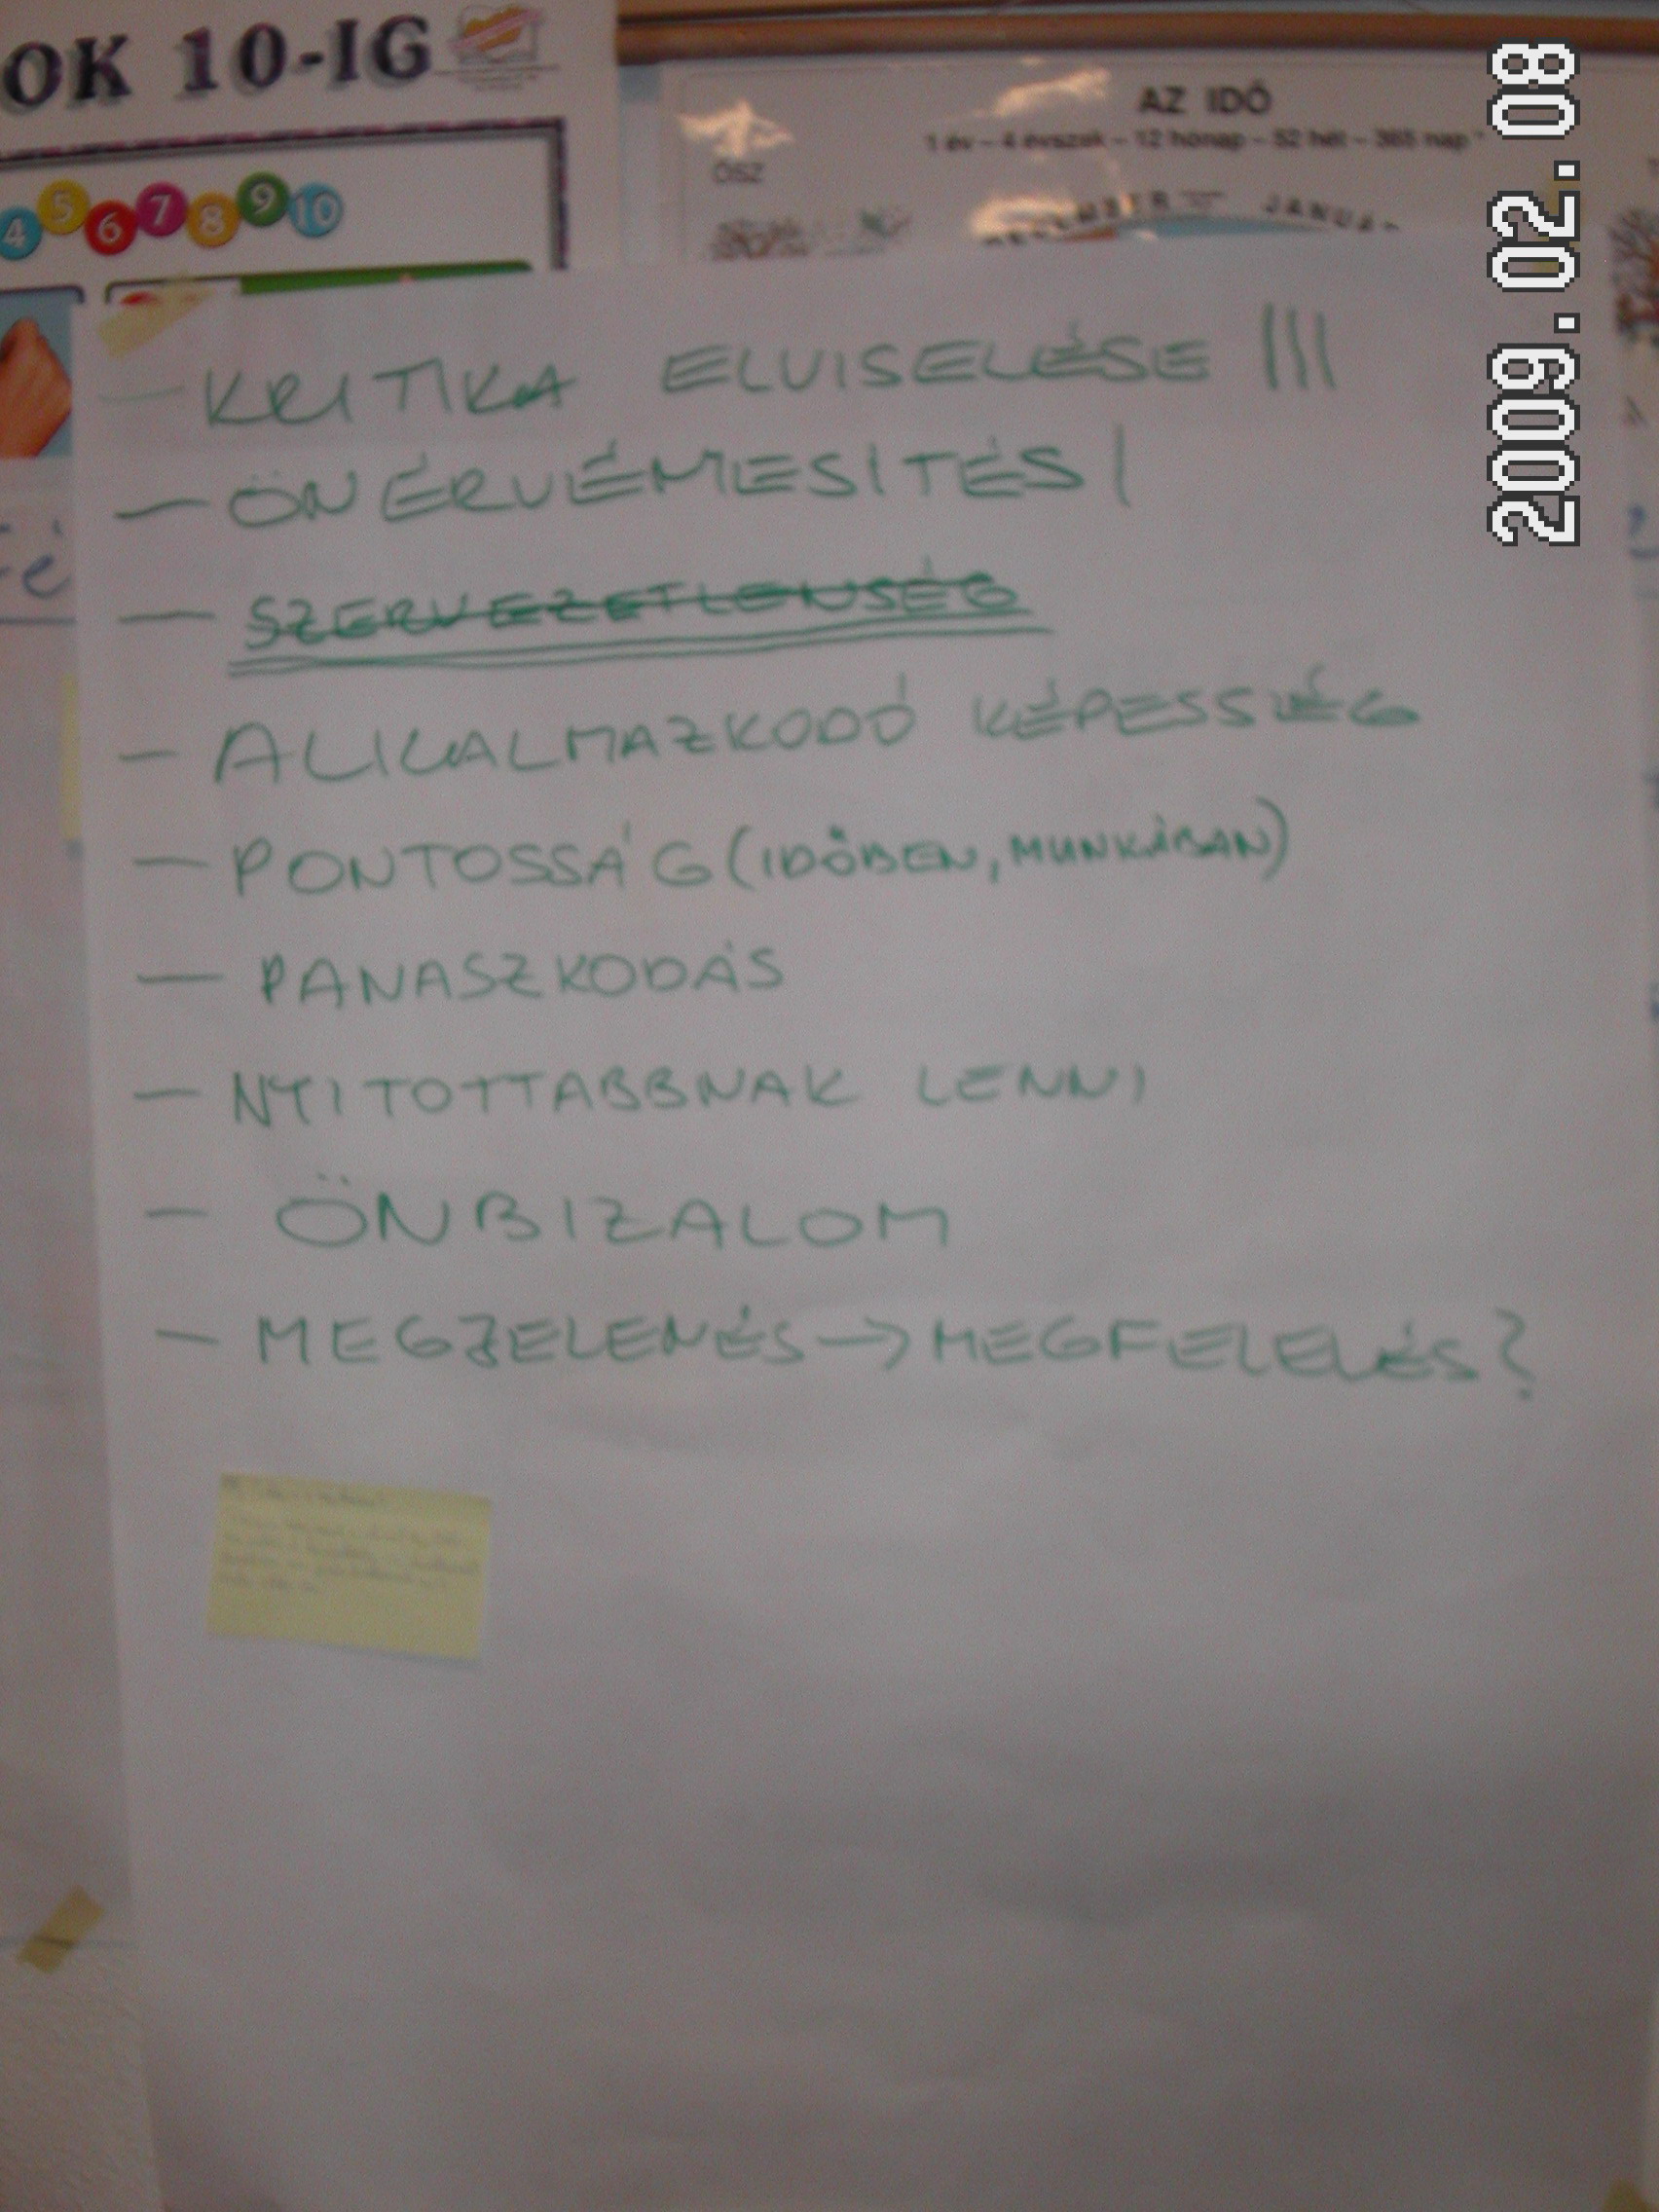 OK 10-IG
4 5 6 7 8 9 10
AZ IDŐ
1 év – 4 évszak – 12 hónap – 52 hét – 365 nap
ŐSZ
2009.02.08
- KRITIKA ELVISELÉSE |||
- ÖNÉRVÉNYESITÉS |
- SZERVEZETLENSÉG
- ALKALMAZKODÓ KÉPESSÉG
- PONTOSSÁG (IDŐBEN, MUNKÁBAN)
- PANASZKODÁS
- NYITOTTABBNAK LENNI
- ÖNBIZALOM
- MEGJELENÉS → MEGFELELÉS?